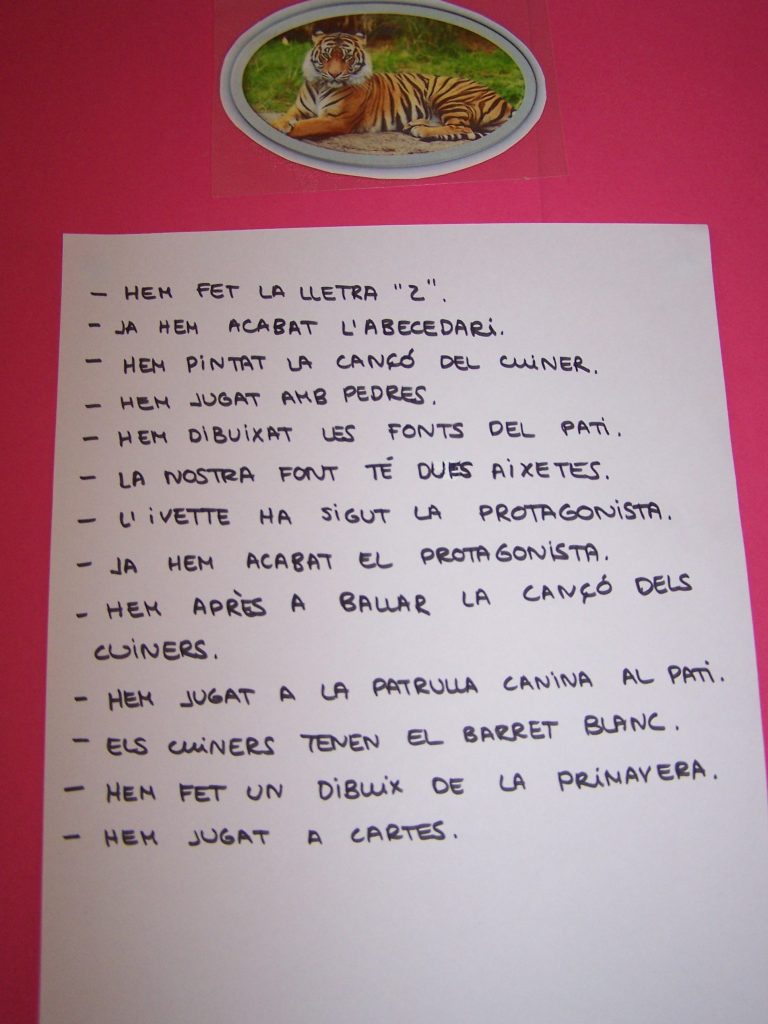 - HEM FET LA LLETRA "Z".
- JA HEM ACABAT L'ABECEDARI.
- HEM PINTAT LA CANÇÓ DEL CUINER.
- HEM JUGAT AMB PEDRES.
- HEM DIBUIXAT LES FONTS DEL PATI.
- LA NOSTRA FONT TÉ DUES AIXETES.
- L'IVETTE HA SIGUT LA PROTAGONISTA.
- JA HEM ACABAT EL PROTAGONISTA.
- HEM APRÈS A BALLAR LA CANÇÓ DELS
CUINERS.
- HEM JUGAT A LA PATRULLA CANINA AL PATI.
- ELS CUINERS TENEN EL BARRET BLANC.
- HEM FET UN DIBUIX DE LA PRIMAVERA.
- HEM JUGAT A CARTES.